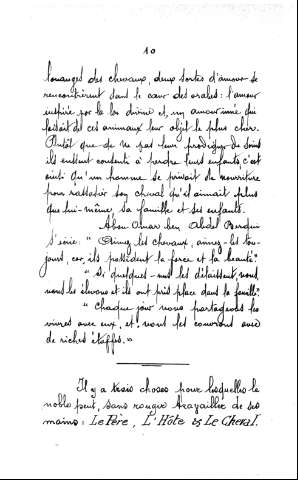 10
louanges des chevaux, deux sortes d'amour se
rencontrèrent dans le cœur des arabes : l'amour
inspiré par la loi divine et, un amour inné qui
faisait de ces animaux leur objet le plus cher.
Plutôt que de ne pas leur prodiguer de soins
ils eussent consenti à perdre leurs enfants, c'est
ainsi qu'un homme se privait de nourriture
pour rassasier son cheval qu'il aimait plus
que lui-même, sa famille et ses enfants.
Abou Omar ben Abdel
s'écrie : " Aimez les chevaux, aimez-les tou-
jours, car, ils possèdent la force et la beauté."
" Si quelques-uns les délaissent, nous
nous les élevons et ils ont pris place dans la famille."
" Chaque jour nous partageons les
vivres avec eux, et nous les couvrons avec
de riches étoffes. "
Il y a trois choses pour lesquelles le
noble peut, sans rougir travailler de ses
mains : Le Père, L'Hôte et Le Cheval.